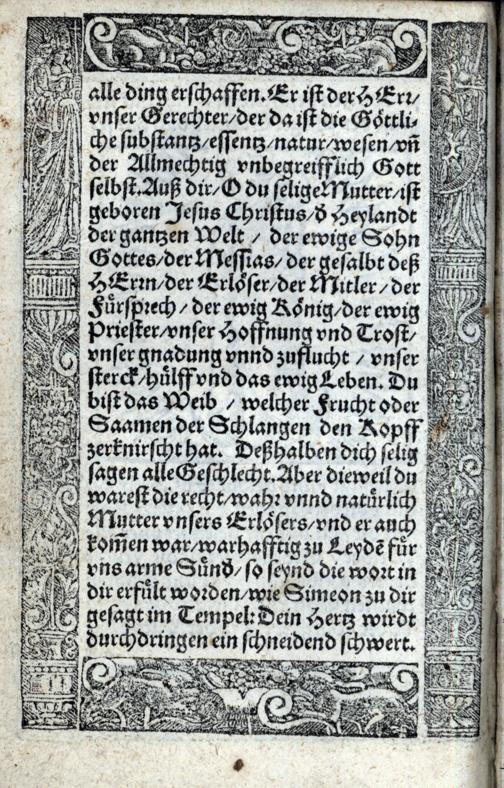 alle ding erschaffen. Er ist der HErr/
vnser Gerechter/der da ist die Göttli-
che substantz/essentz/natur/wesen/vñ
der Allmechtig vnbegreifflich Gott
selbst. Auß dir/O du selige Mutter/ist
geboren Jesus Christus/ð Heylandt
der gantzen Welt / der ewige Sohn
Gottes/der Messias/der gesalbt deß
HErrn/der Erlöser/der Mitler/der
Fürsprech/der ewig König/der ewig
Priester/vnser Hoffnung vnd Trost/
vnser gnadung vnnd zuflucht / vnser
sterck/hülff vnd das ewig Leben. Du
bist das Weib / welcher Frucht oder
Saamen der Schlangen den Kopff
zerknirscht hat. Deßhalben dich selig
sagen alle Geschlecht. Aber dieweil du
warest die recht/wahr vnnd natürlich
Mutter vnsers Erlösers/vnd er auch
kom̃en war/warhafftig zu Leydẽ für
vns arme Sünð/so seynd die wort in
dir erfült worden/wie Simeon zu dir
gesagt im Tempel: Dein Hertz wirdt
durchdringen ein schneidend schwert.